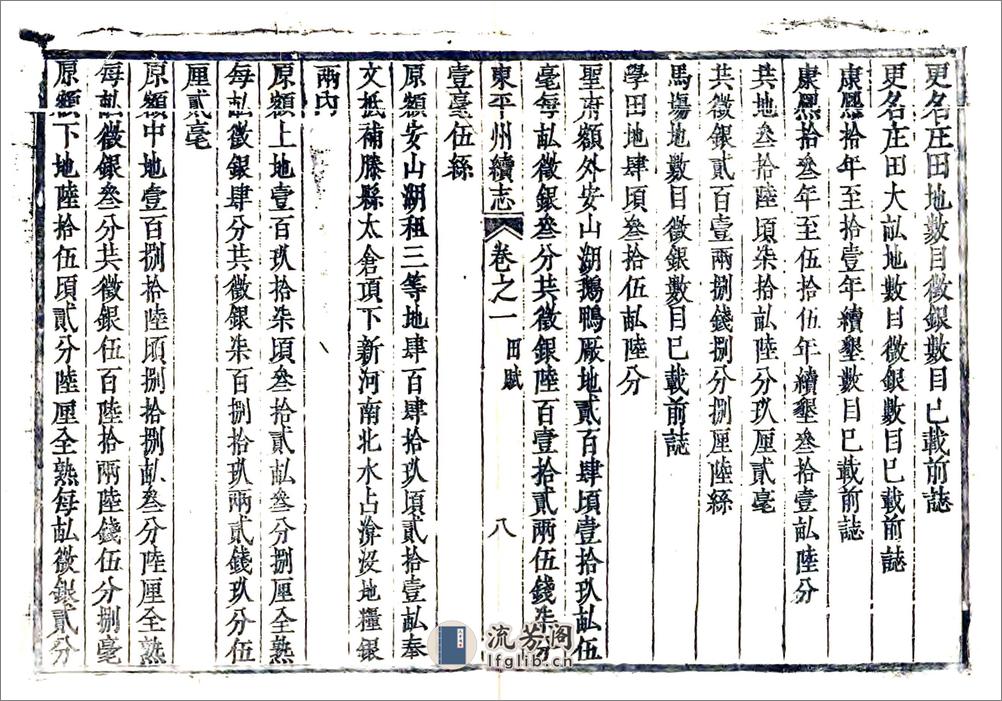 更名庄田地數目徵銀數目已載前誌
更名庄田大畝地數目徵銀數目已載前誌
康熙拾年至拾壹年續墾數目已載前誌
康熙拾叁年至伍拾伍年續墾叁拾壹畝陸分
共地叁拾陸頃柒拾畝陸分玖厘貳毫
共徵銀貳百壹兩捌錢捌分捌厘陸絲
馬場地數目徵銀數目已載前誌
學田地肆頃叁拾伍畝陸分
聖府額外安山湖鵝鴨厰地貳百肆頃壹拾玖畝伍
毫每畝徵銀叁分共徵銀陸百壹拾貳兩伍錢柒分
東平州續志 卷之一 田賦 八
壹毫伍絲
原額安山湖租三等地肆百肆拾玖頃貳拾壹畝奉
文抵補滕縣太倉項下新河南北水占渰没地糧銀
兩内
原額上地壹百玖拾柒頃叁拾貳畝叁分捌厘全熟
每畝徵銀肆分共徵銀柒百捌拾玖兩貳錢玖分伍
厘貳毫
原額中地壹百捌拾陸頃捌拾捌畝叁分陸厘全熟
每畝徵銀叁分共徵銀伍百陸拾兩陸錢伍分捌毫
原額下地陸拾伍頃貳分陸厘全熟每畝徵銀貳分
流芳阁
lfglib.cn